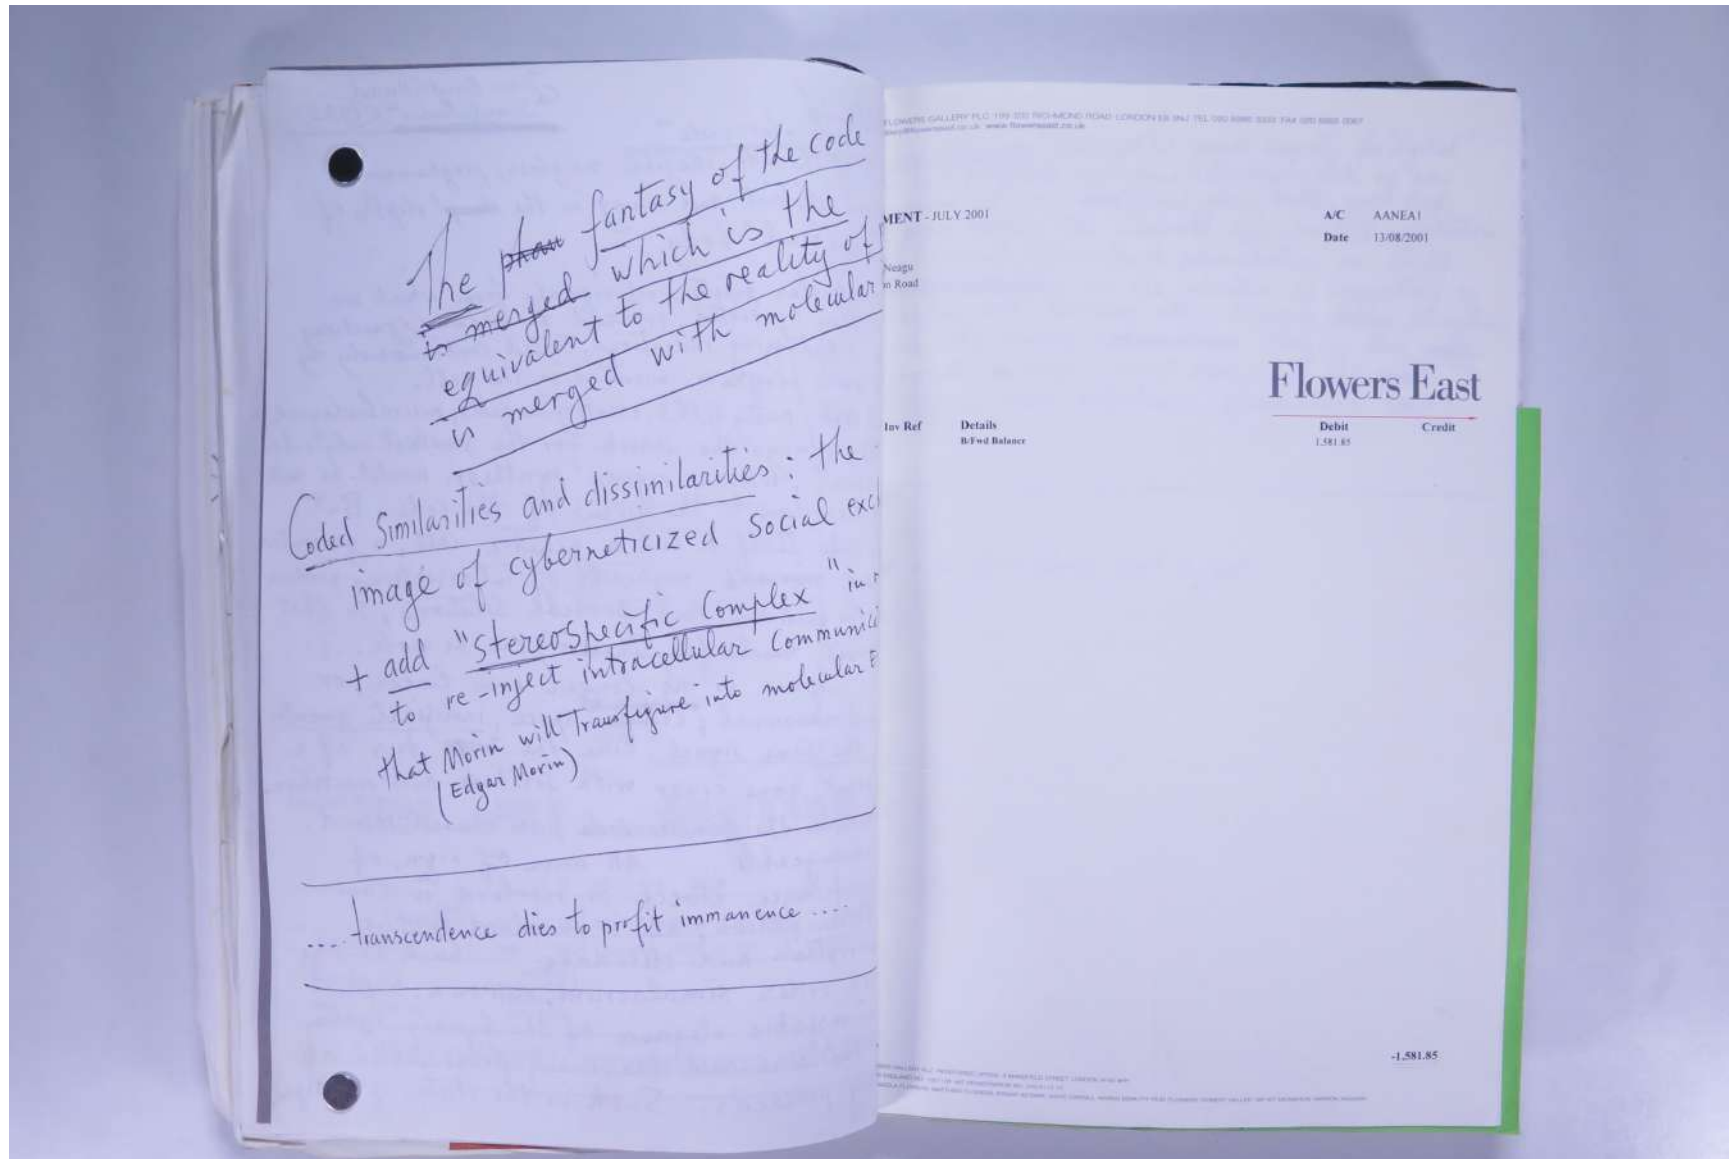 The phan fantasy of the code
is merged which is the
equivalent to the reality of
is merged with molecular
Coded Similarities and dissimilarities : the
image of cyberneticized social exc
+ add "stereospecific Complex" in
to re-inject intracellular Communic
that Morin will Transfigure into molecular E
(Edgar Morin)
.... transcendence dies to profit immanence ....
FLOWERS GALLERY PLC 199-205 RICHMOND ROAD LONDON E8 3NJ TEL 020 8985 3333 FAX 020 8985 0067
www.flowerseast.co.uk
MENT - JULY 2001
A/C AANEA1
Date 13/08/2001
Neagu
n Road
Flowers East
Inv Ref Details Debit Credit
B/Fwd Balance 1,581.85
-1,581.85